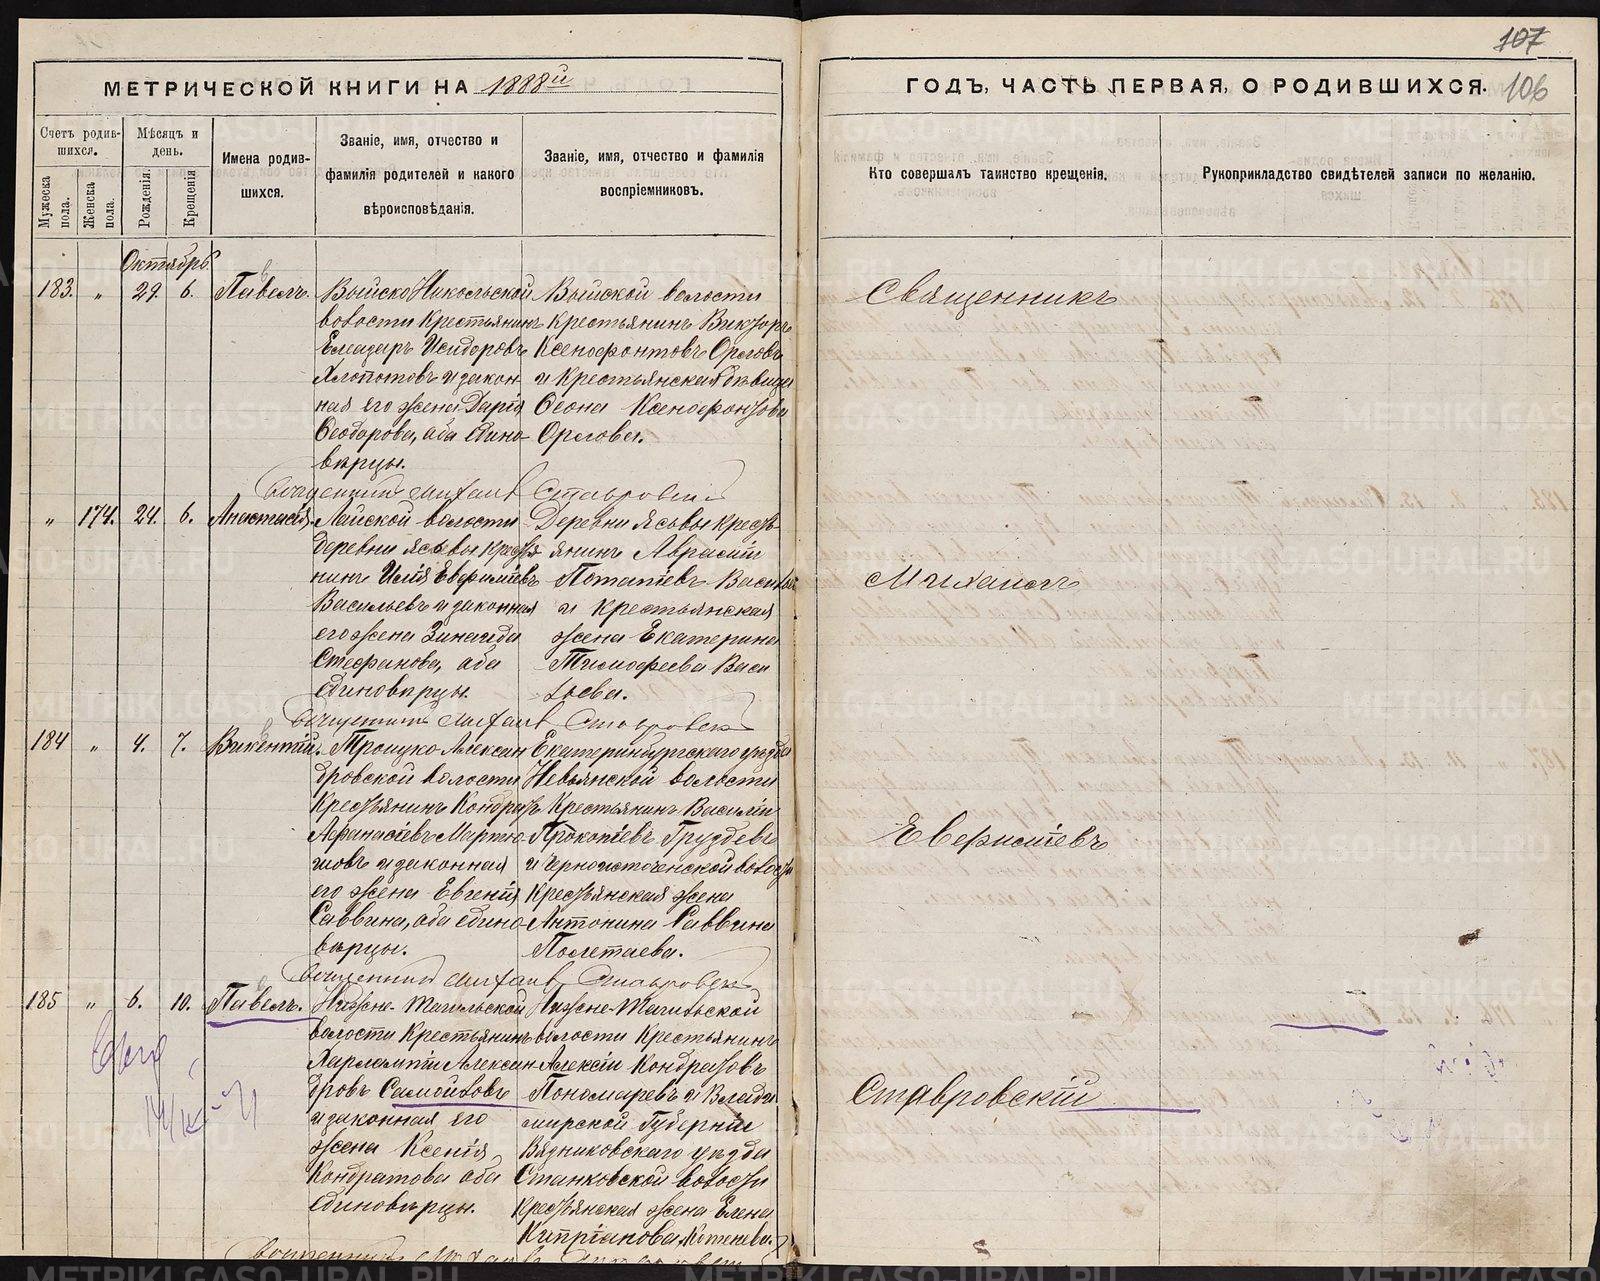 107
106
МЕТРИЧЕСКОЙ КНИГИ НА 1888й
ГОДЪ, ЧАСТЬ ПЕРВАЯ, О РОДИВШИХСЯ.
Счетъ родив-
шихся.
Мужеска пола.
Женска пола.
Мѣсяцъ и день.
Рожденія.
Крещенія
Имена родив-
шихся.
Званіе, имя, отчество и
фамилія родителей и какого
вѣроисповѣданія.
Званіе, имя, отчество и фамилія
воспріемниковъ.
Кто совершалъ таинство крещенія.
Рукоприкладство свидѣтелей записи по желанію.
Октябрь
183. „ 29. 6. Павелъ.
Выйско Николь­ской
волости Крестьянинъ
Елеазаръ Исидоровъ
Хлопотовъ и закон-
ная его жена Дарія
Ѳеодорова, оба едино-
вѣрцы.
Выйской волости
крестьянинъ Викторъ
Ксенофонтовъ Орловъ
и Крестьянская дѣвица
Ѳеона Ксенофонтова
Орлова.
Священникъ Михаилъ Ставровскій
„ 174. 24. 6. Анастасія.
Лайской волости
деревни Ясьвы крестья
нинъ Илія Евфиміевъ
Васильевъ и законная
его жена Зинаида
Стефанова, оба
единовѣрцы.
Деревни Ясьвы кресть
янинъ Аврамій
Потапіевъ Васильевъ
и крестьянская
жена Екатерина
Тимофеева Васи
льева.
Священникъ Михаилъ Ставровскій
184 „ 4. 7. Викентій.
Троицко Алексан
дровской волости
Крестьянинъ Кондратъ
Афанасіевъ Мартю-
шовъ и законная
его жена Евгенія
Саввина, оба едино
вѣрцы.
Екатеринбургскаго уѣзда
Невьянской волости
Крестьянинъ Василій
Прокопіевъ Груздевъ
и Черноисточенской волости
крестьянская жена
Антонина Саввина
Полетаева.
Священникъ Михаилъ Ставровскій
185 „ 6. 10. Павелъ.
Нижне-Тагильской
волости Крестьянинъ
Харлампій Алексан-
дровъ Самойловъ
и законная его
жена Ксенія
Кондратова оба
единовѣрцы.
Нижне-Тагильской
волости Крестьянинъ
Алексій Кондратовъ
Пономаревъ и Влади
мирской Губерніи
Вязниковскаго уѣзда
Станковской волости
крестьянская жена Елена
Кипріанова
Священникъ Михаилъ Ставровскій
Священникъ
Михаилъ
Евфиміевъ
Ставровскій